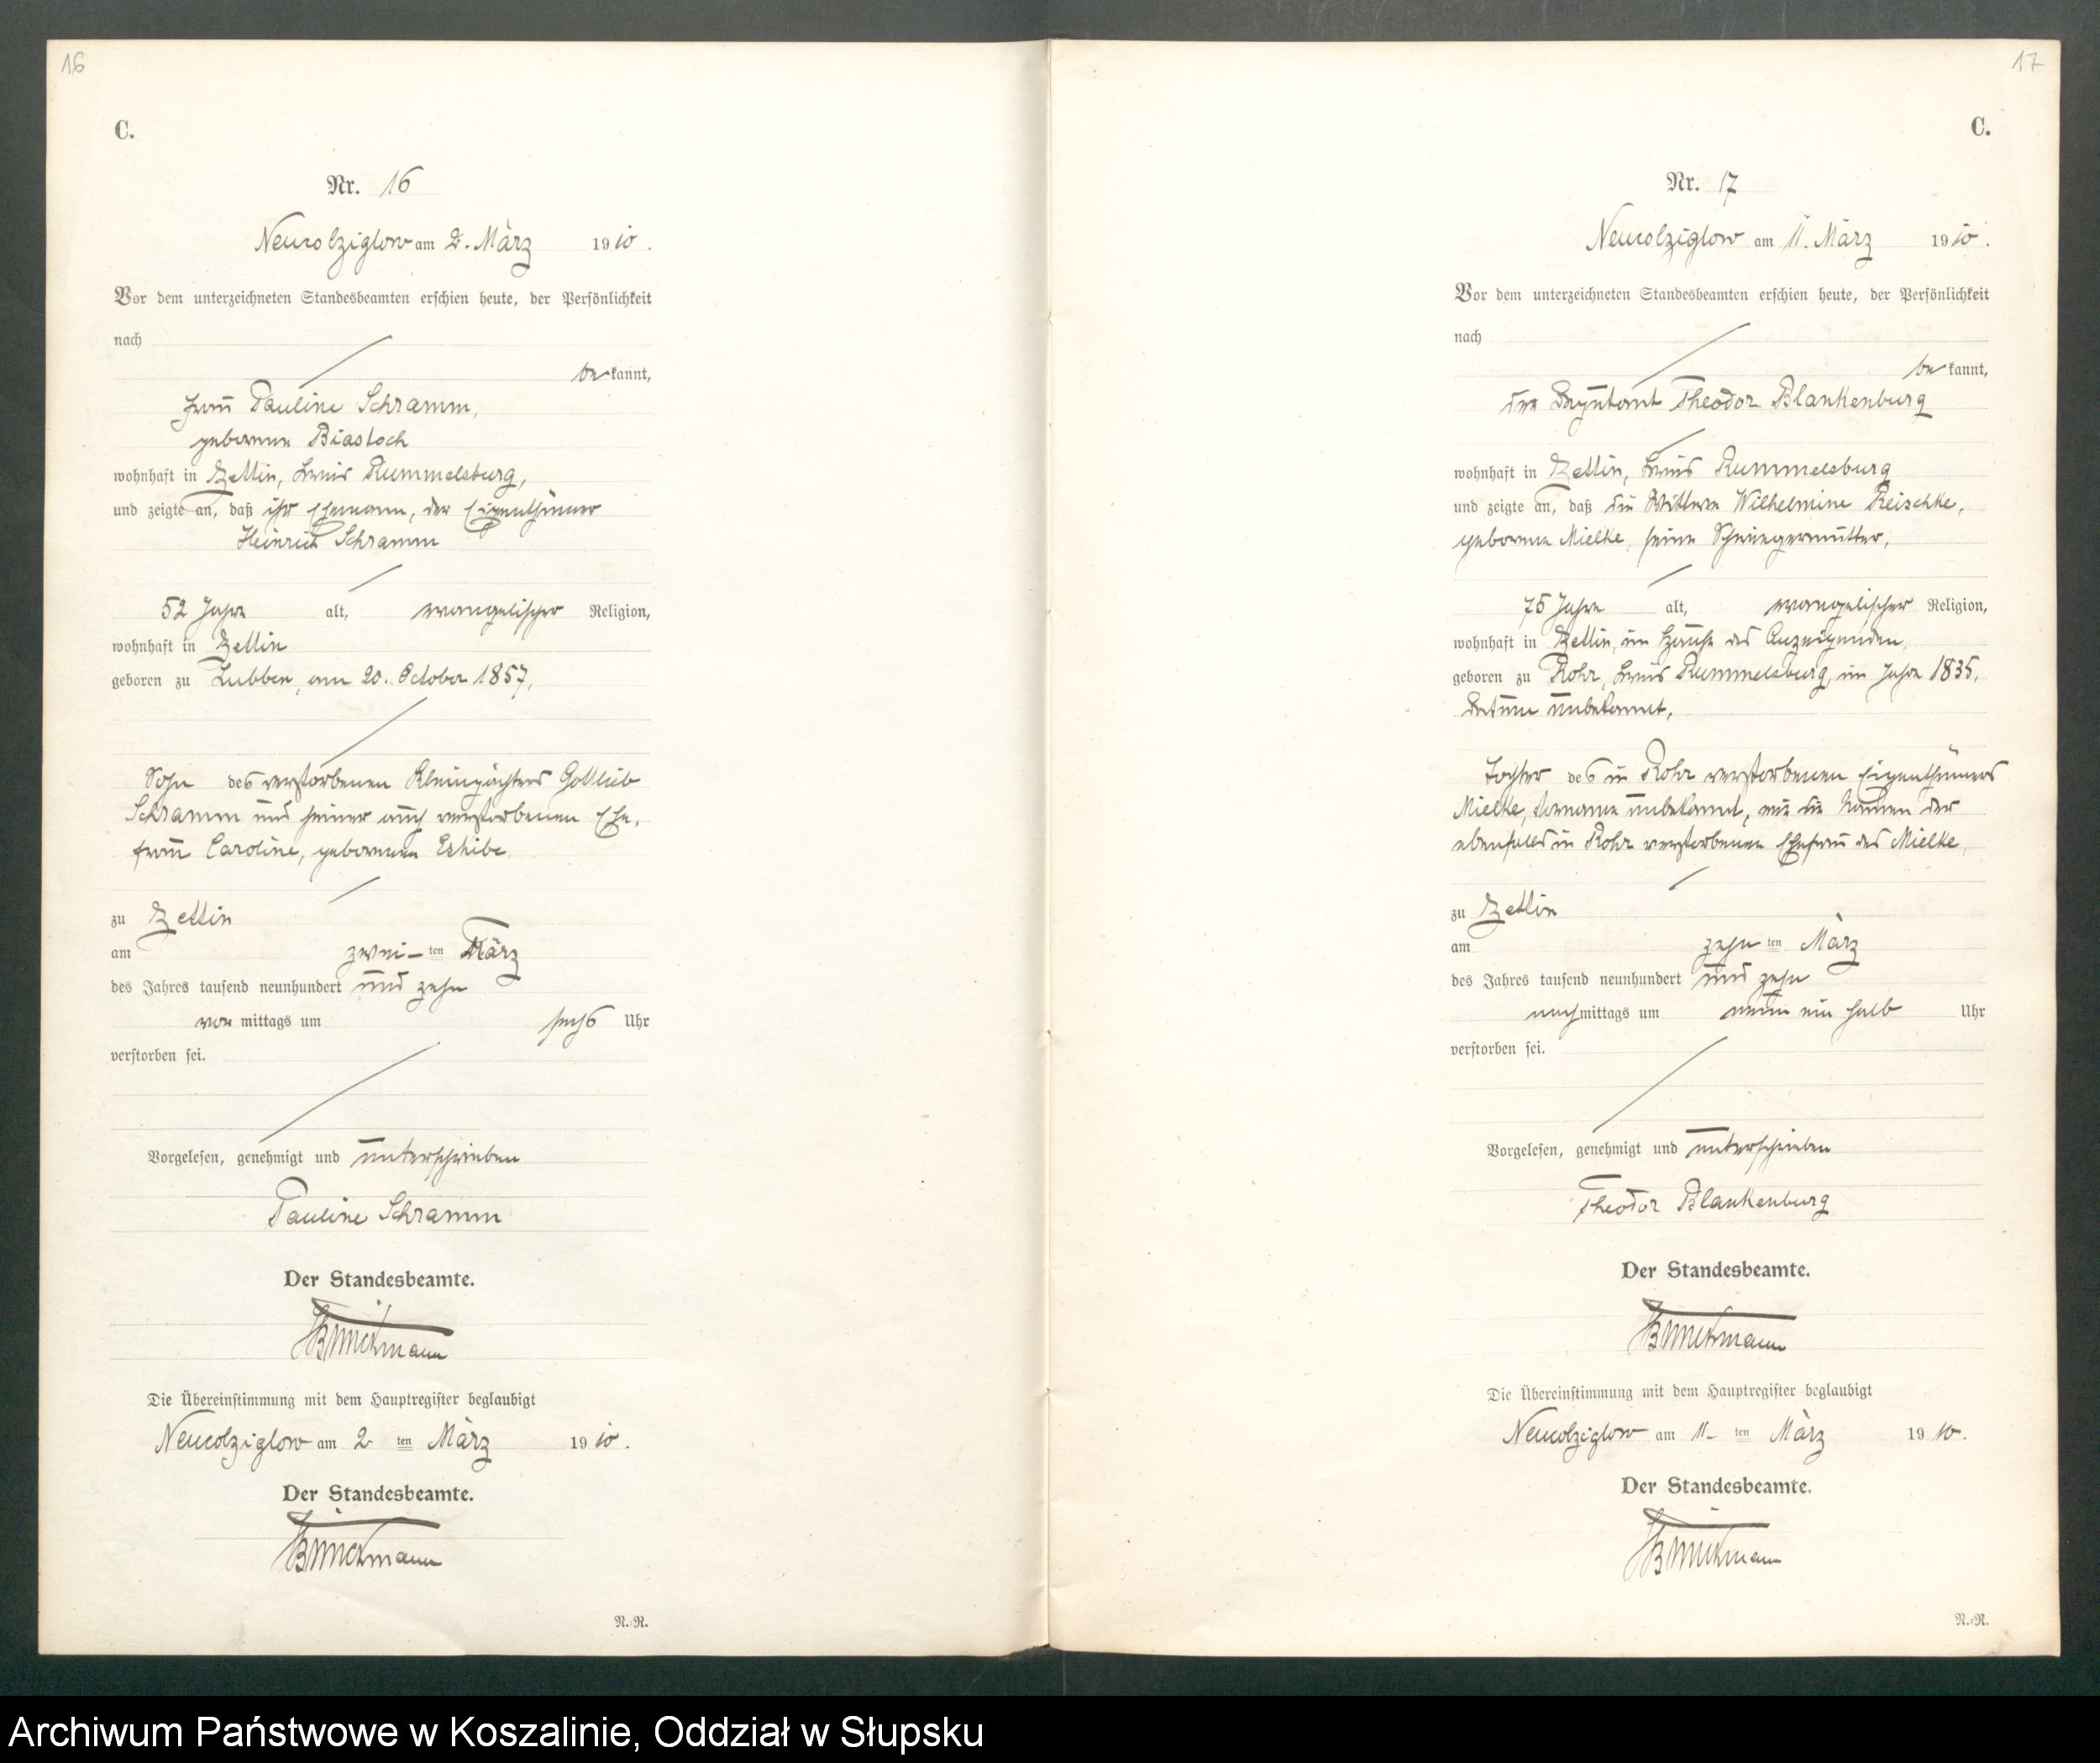 16
C.
Nr. 16
Neukolziglow am 2. März 1910.
Vor dem unterzeichneten Standesbeamten erschien heute, der Persönlichkeit
nach
bekannt,
Frau Pauline Schramm,
geborene Biastoch
wohnhaft in Zettin, Kreis Rummelsburg,
und zeigte an, daß ihr Ehemann, der Eigenthümer
Heinrich Schramm
52 Jahre alt, evangelischer Religion,
wohnhaft in Zettin
geboren zu Lubben, am 20. October 1857,
Sohn des verstorbenen Kleinpächters Gottlieb
Schramm und seiner auch verstorbenen Ehe-
frau Caroline, geborenen
zu Zettin
am zwei-ten März
des Jahres tausend neunhundert und zehn
vormittags um sechs Uhr
verstorben sei.
Vorgelesen, genehmigt und unterschrieben
Pauline Schramm
Der Standesbeamte.
Die Übereinstimmung mit dem Hauptregister beglaubigt
Neukolziglow am 2ten März 1910.
Der Standesbeamte.
N.-R.
17
C.
Nr. 17
Neukolziglow am 11. März 1910.
Vor dem unterzeichneten Standesbeamten erschien heute, der Persönlichkeit
nach
bekannt,
der Deputant Theodor Blankenburg
wohnhaft in Zettin, Kreis Rummelsburg
und zeigte an, daß die Wittwe Wilhelmine Reischke,
geborene Mielke, seine Schwiegermutter,
75 Jahre alt, evangelischer Religion,
wohnhaft in Zettin, im Hause des Anzeigenden,
geboren zu Rohr, Kreis Rummelsburg, im Jahre 1835,
Datum unbekannt,
Tochter des in Rohr verstorbenen Eigenthümers
Mielke, Vorname unbekannt, wie die Namen der
ebenfalls in Rohr verstorbenen Ehefrau des Mielke,
zu Zettin
am zehnten März
des Jahres tausend neunhundert und zehn
nachmittags um neun ein halb Uhr
verstorben sei.
Vorgelesen, genehmigt und unterschrieben
Theodor Blankenburg
Der Standesbeamte.
Die Übereinstimmung mit dem Hauptregister beglaubigt
Neukolziglow am 11-ten März 1910.
Der Standesbeamte.
N.-R.
Archiwum Państwowe w Koszalinie, Oddział w Słupsku